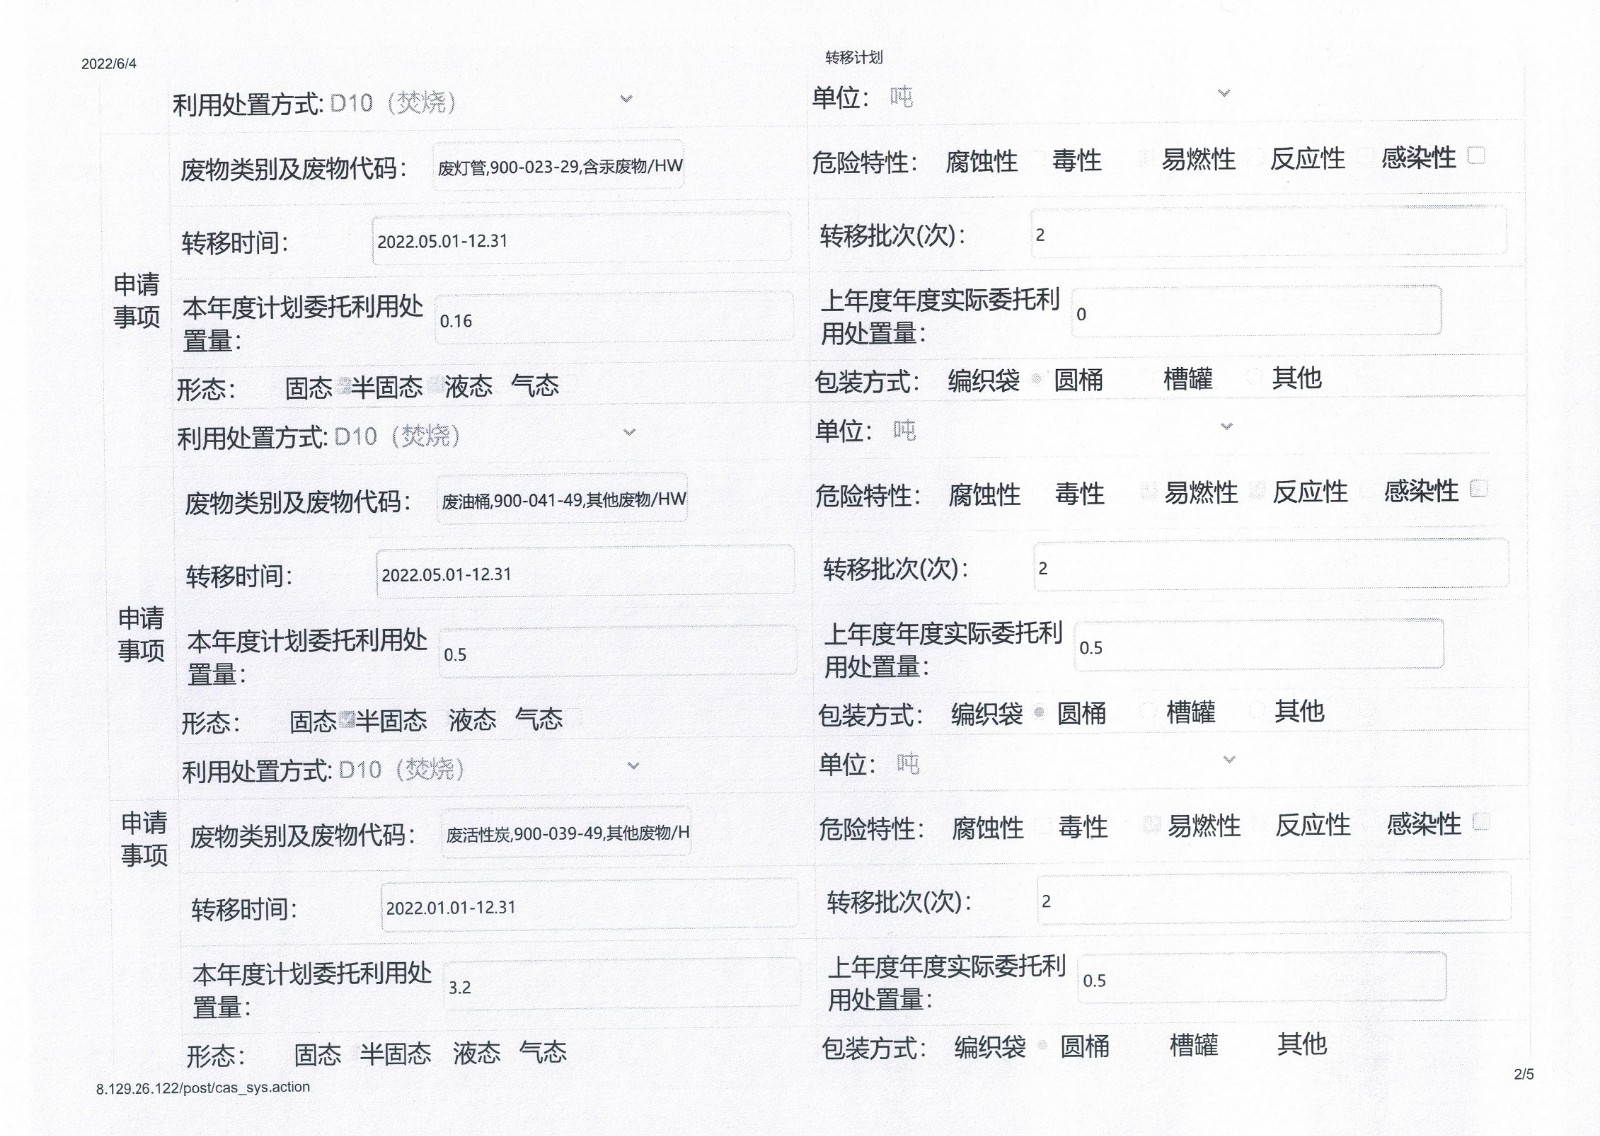 2022/6/4
转移计划
利用处置方式: D10（焚烧）
单位： 吨
申请事项
废物类别及废物代码： 废灯管,900-023-29,含汞废物/HW
危险特性： 腐蚀性 毒性 易燃性 反应性 感染性
转移时间： 2022.05.01-12.31
转移批次(次)： 2
本年度计划委托利用处
置量： 0.16
上年度年度实际委托利
用处置量： 0
形态： 固态 半固态 液态 气态
包装方式： 编织袋 圆桶 槽罐 其他
利用处置方式: D10（焚烧）
单位： 吨
申请事项
废物类别及废物代码： 废油桶,900-041-49,其他废物/HW
危险特性： 腐蚀性 毒性 易燃性 反应性 感染性
转移时间： 2022.05.01-12.31
转移批次(次)： 2
本年度计划委托利用处
置量： 0.5
上年度年度实际委托利
用处置量： 0.5
形态： 固态 半固态 液态 气态
包装方式： 编织袋 圆桶 槽罐 其他
利用处置方式: D10（焚烧）
单位： 吨
申请事项
废物类别及废物代码： 废活性炭,900-039-49,其他废物/H
危险特性： 腐蚀性 毒性 易燃性 反应性 感染性
转移时间： 2022.01.01-12.31
转移批次(次)： 2
本年度计划委托利用处
置量： 3.2
上年度年度实际委托利
用处置量： 0.5
形态： 固态 半固态 液态 气态
包装方式： 编织袋 圆桶 槽罐 其他
8.129.26.122/post/cas_sys.action
2/5